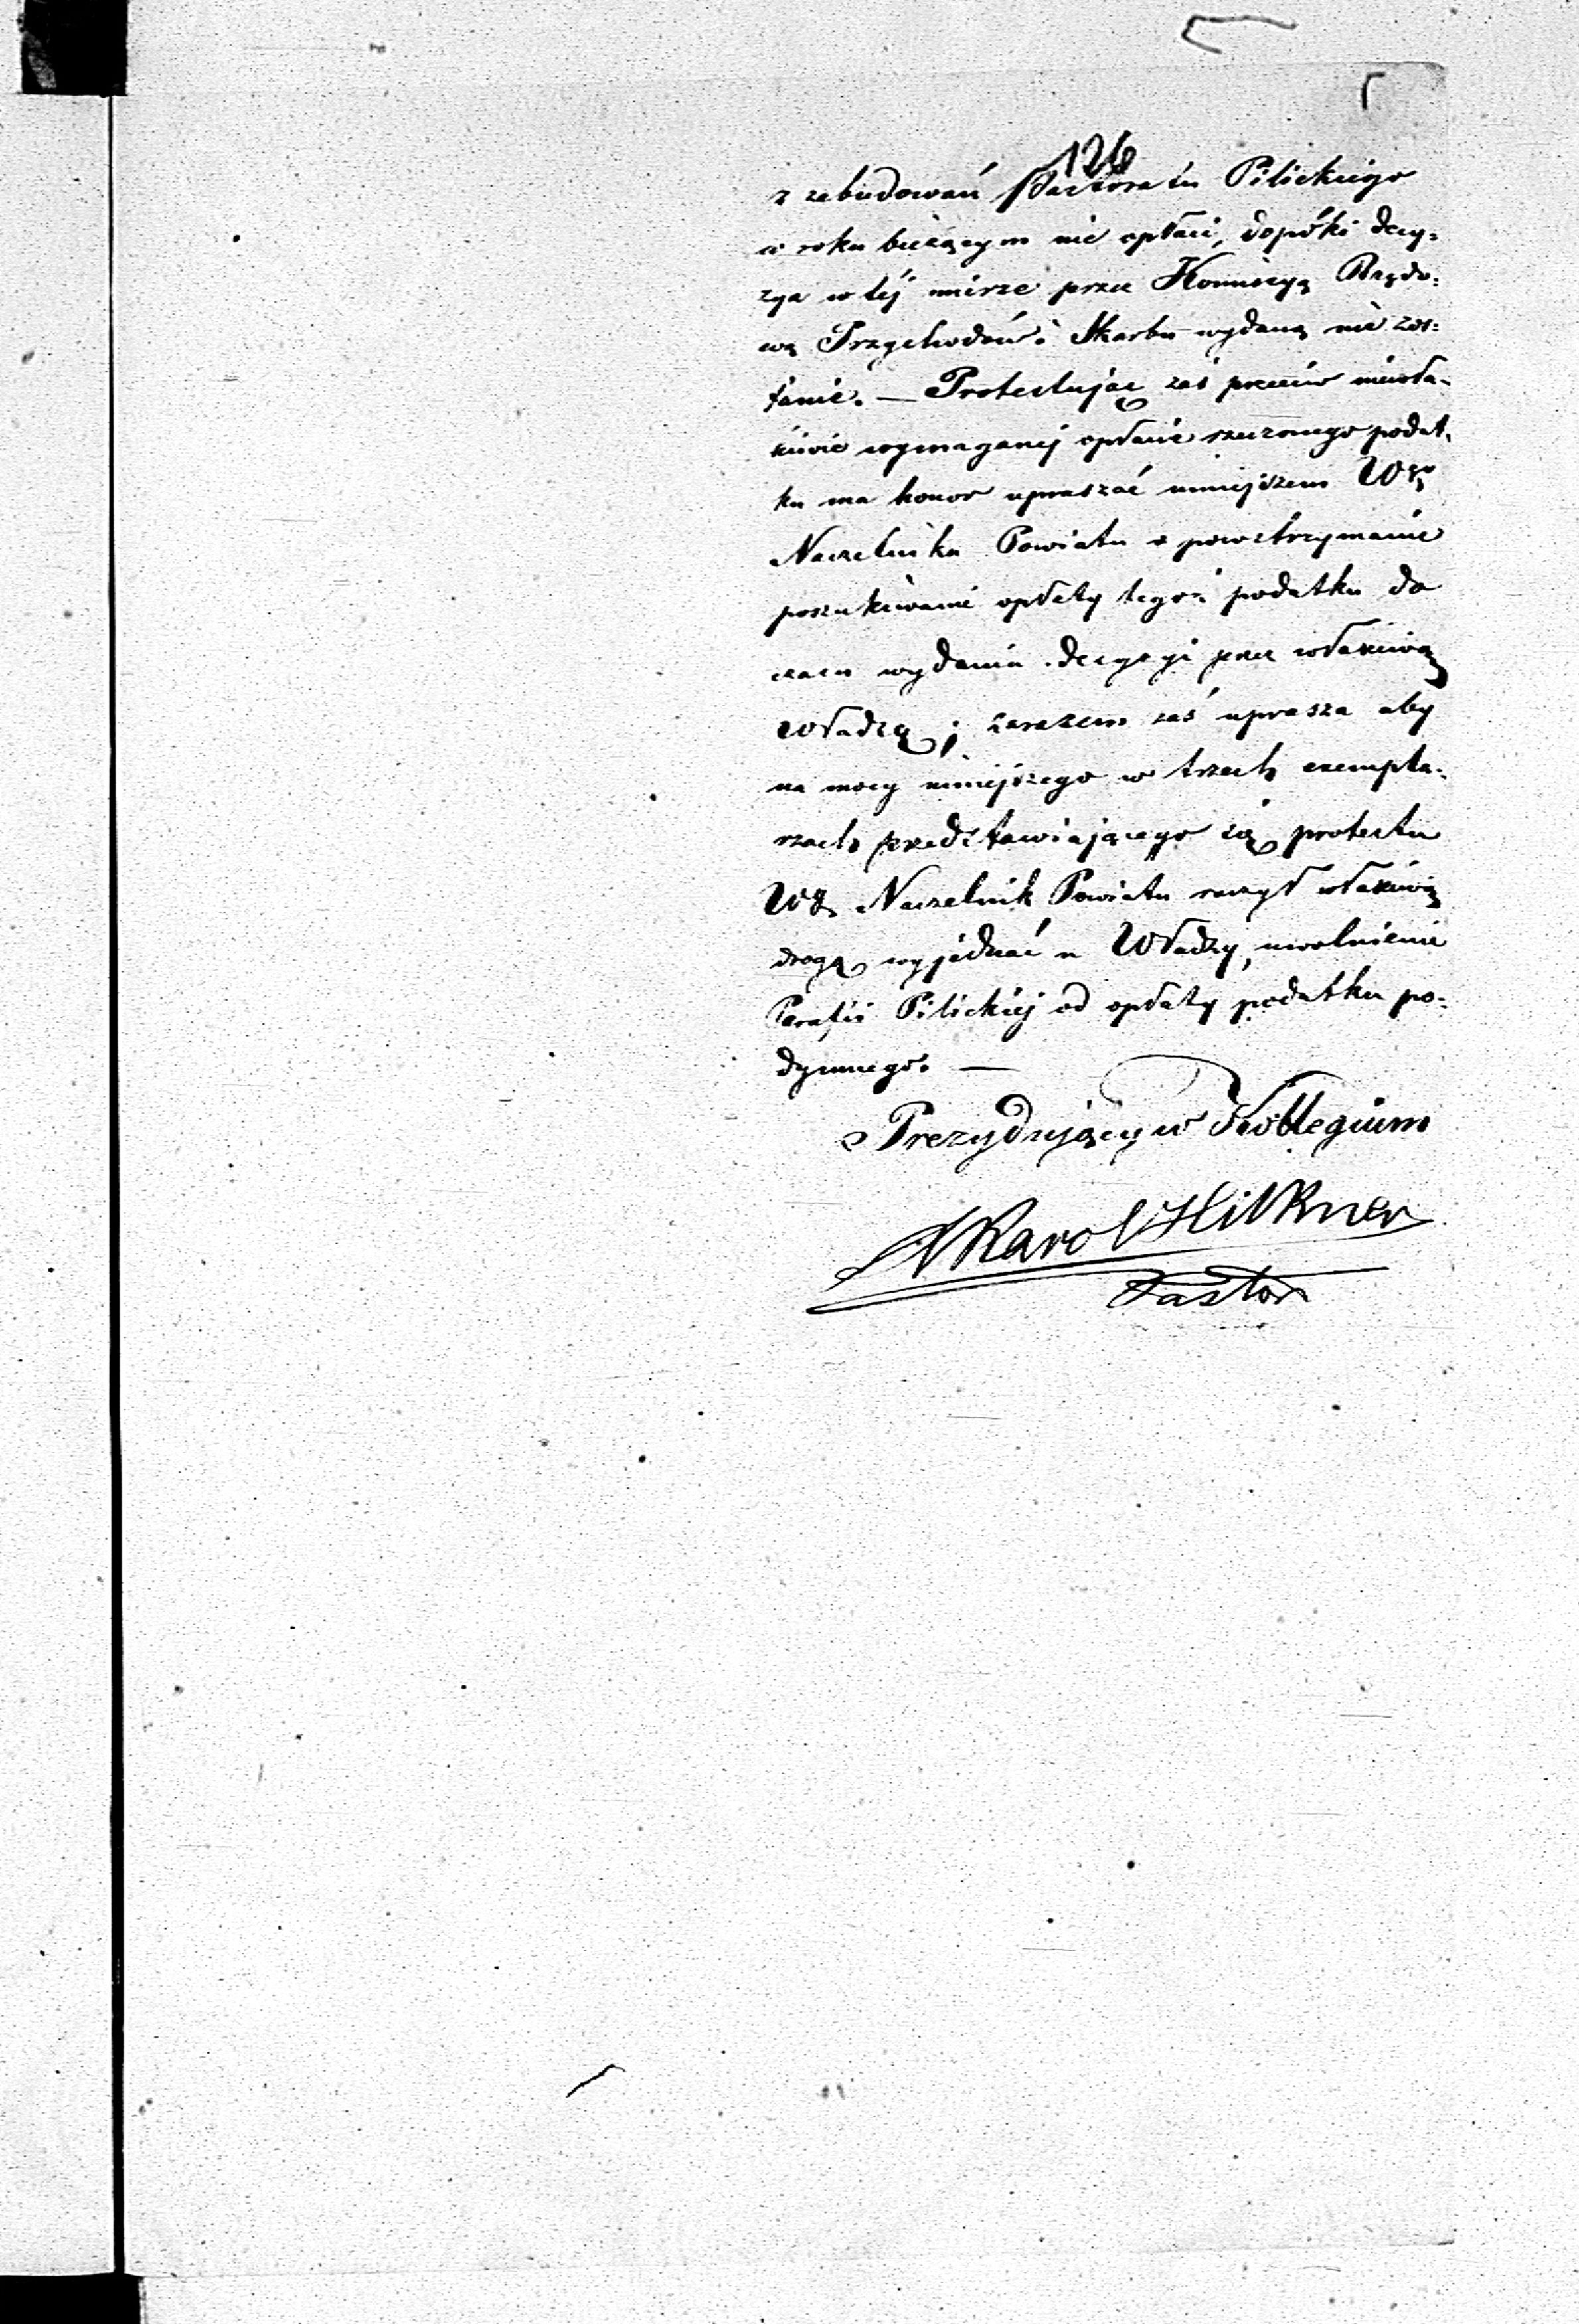 126
z zabudowań Pastoratu Pilickiego
w roku bieżącym nie opłaci, dopóki decy-
zya w téj mierze przez Kommisyą Rządo-
wą Przychodów i Skarbu wydaną nie zos-
tanie. — Protestując zaś przeciw niewła-
ściwie wymaganéj opłacie rzeczonego podat-
ku ma honor upraszać niniejszem
Naczelnika Powiatu o powstrzymanie
poszukiwanie opłaty tegoż podatku do
czasu wydania decyzyi przez właściwą
Władzę; zarazem zaś uprasza aby
na mocy niniejszego w trzech exempla-
rzach przedstawiającego się protestu
Naczelnik Powiatu raczył właściwą
drogą wyjednać u Władzy, uwolnienie
Parafii Pilickiéj od opłaty podatku po-
dymnego. —
Prezydujący w Kollegium
Karol
Pastor